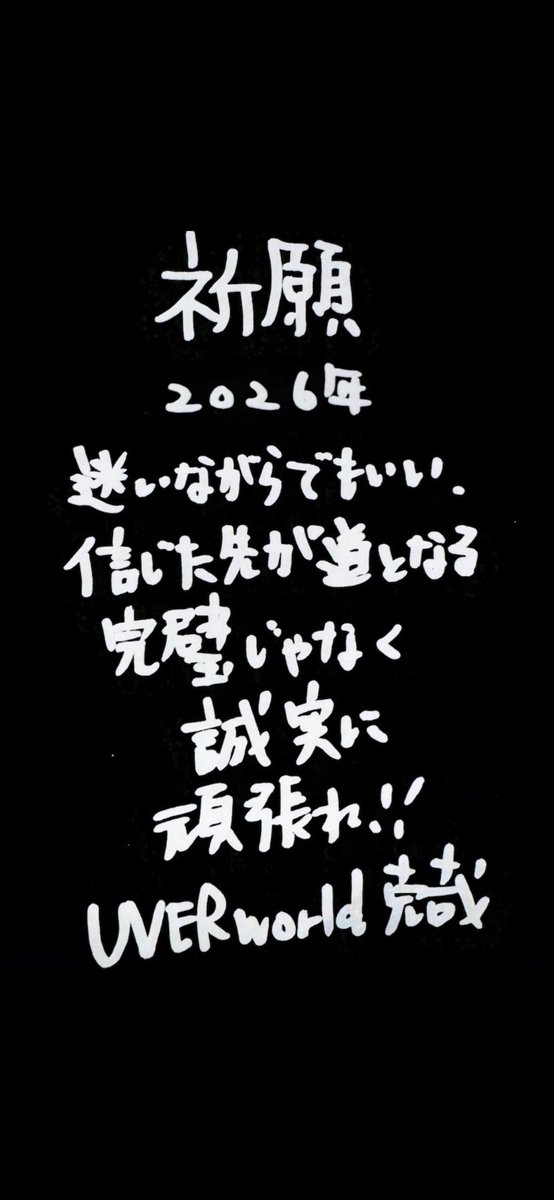 祈願
2026年
迷いながらでもいい.
信じた先が道となる
完璧じゃなく
誠実に
頑張れ!!
UVERworld 克哉